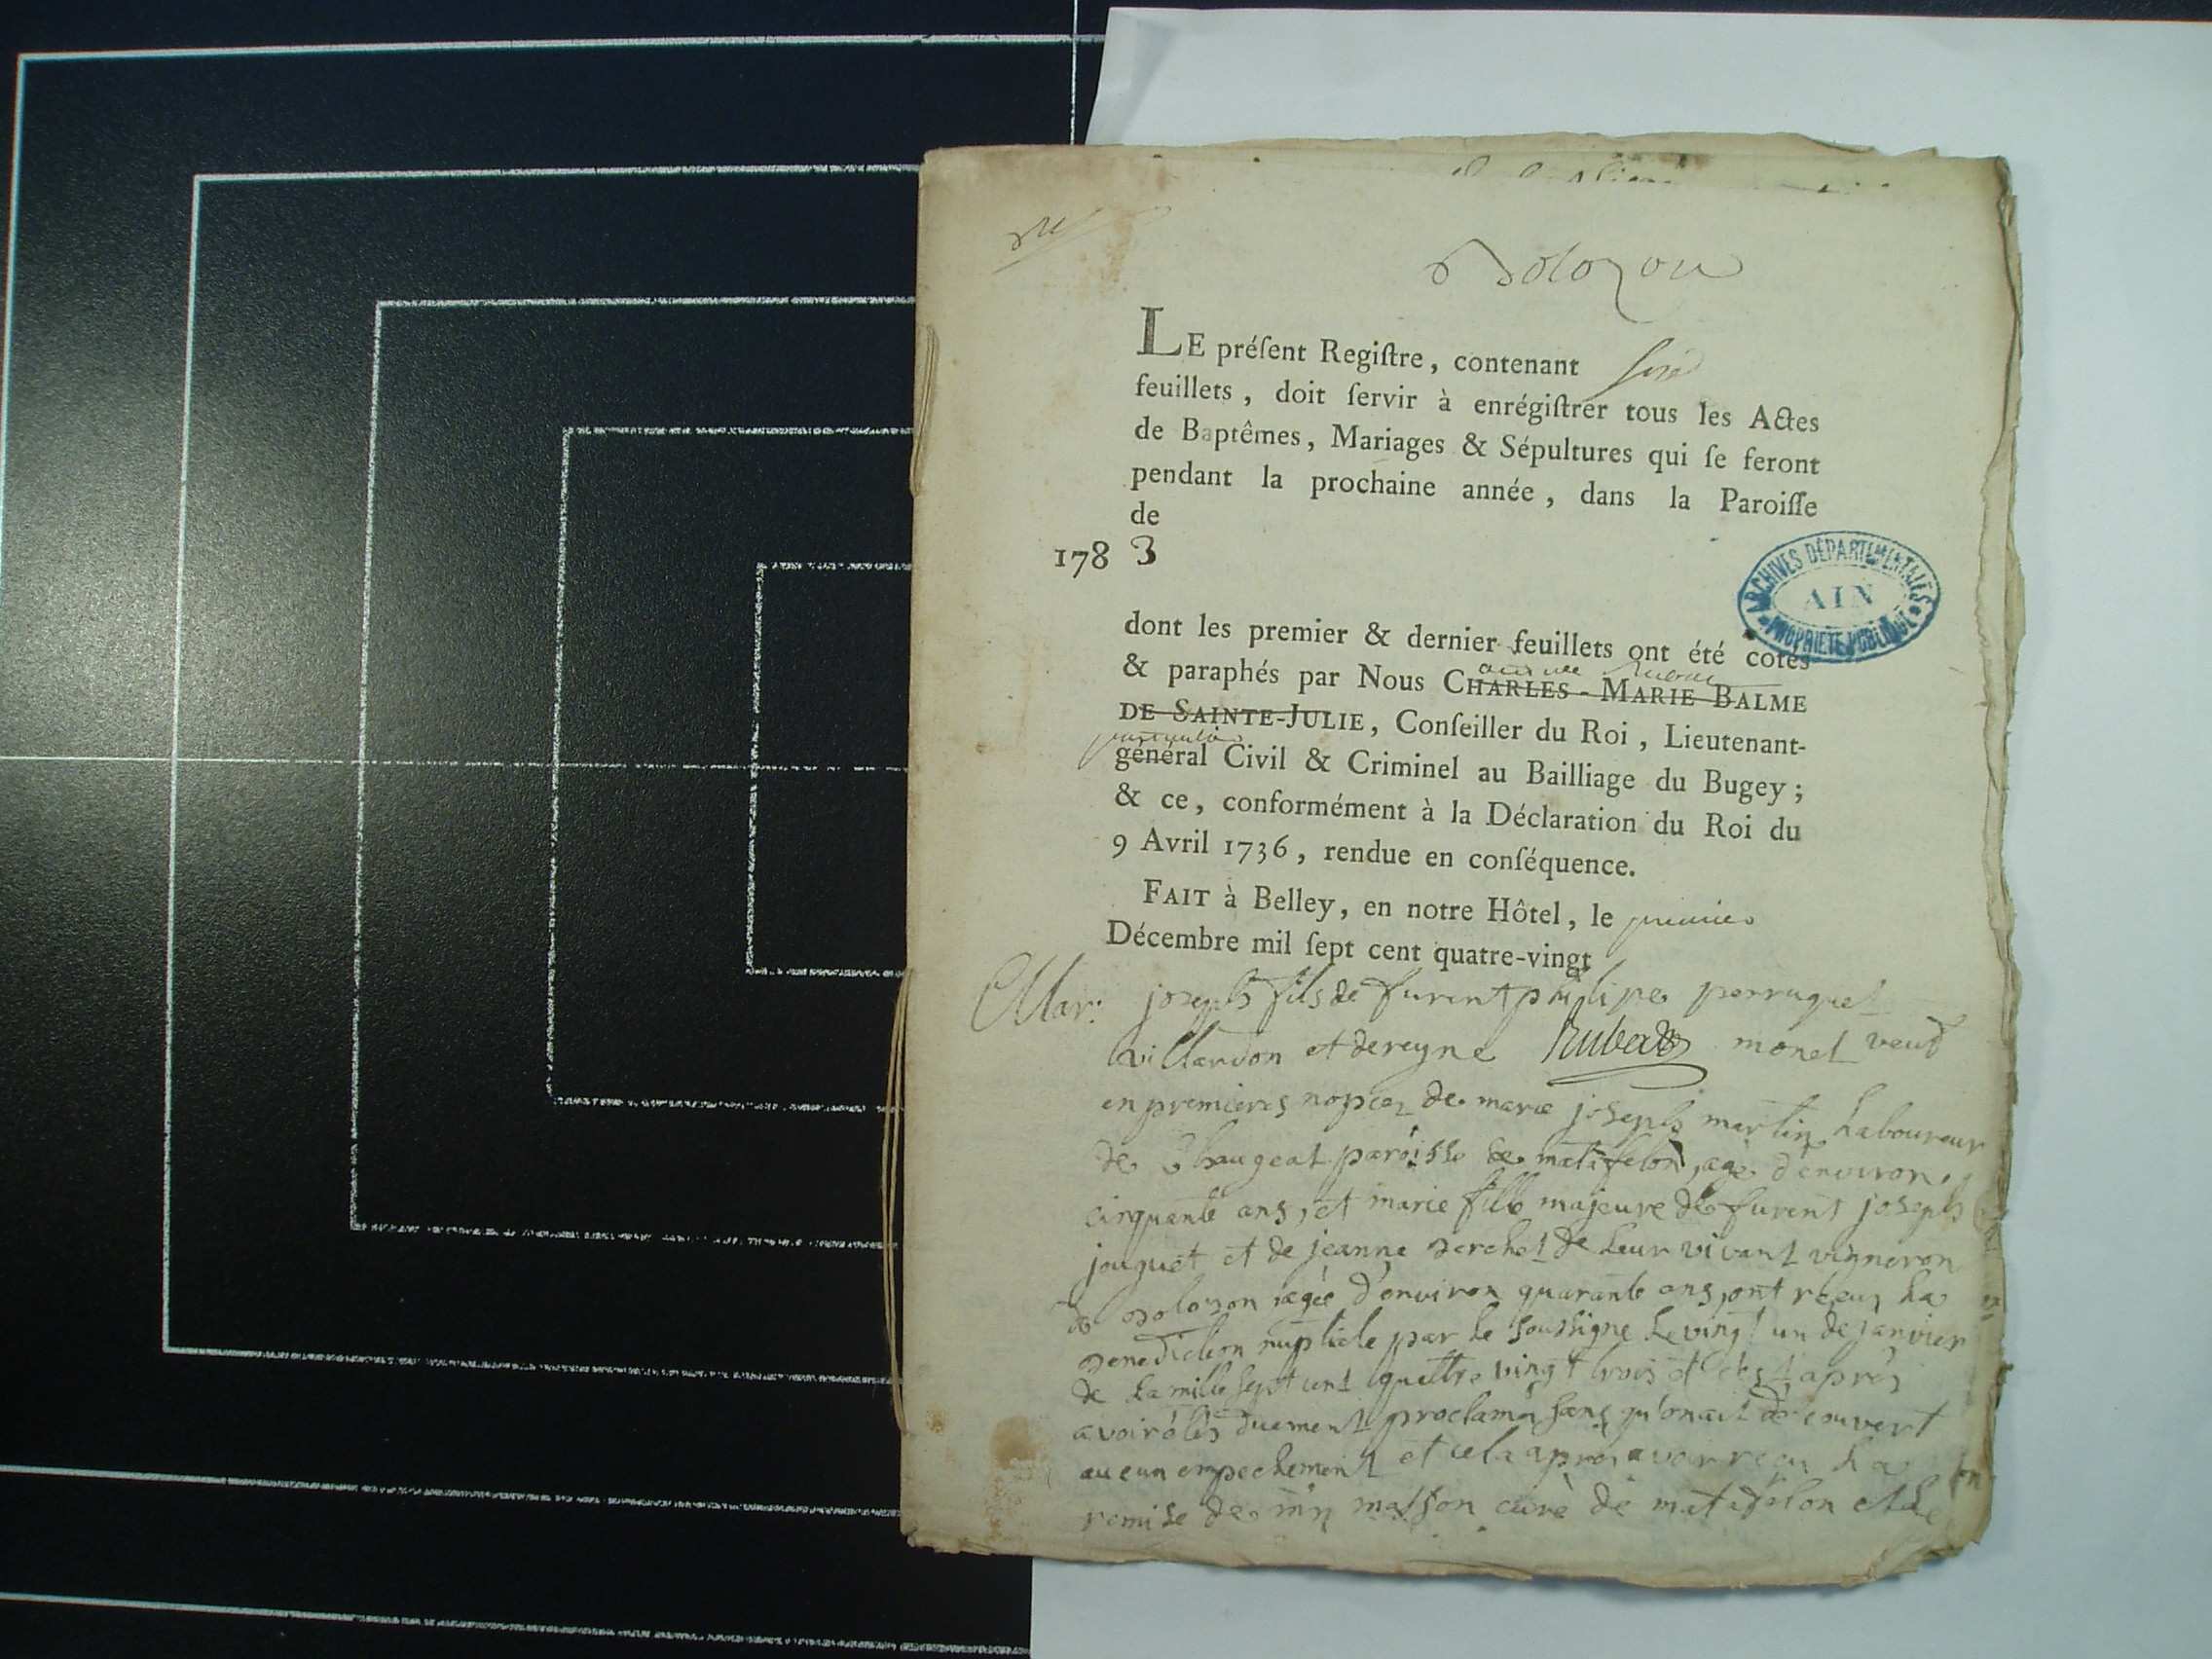 Bolozon
LE préſent Regiſtre, contenant
feuillets, doit ſervir à enrégiſtrer tous les Actes
de Baptêmes, Mariages & Sépultures qui ſe feront
pendant la prochaine année, dans la Paroiſſe
de
178 3
ARCHIVES DÉPARTEMENTALES
AIN
PROPRIÉTÉ PUBLIQUE
dont les premier & dernier feuillets ont été cotés
& paraphés par Nous CHARLES-MARIE BALME
DE SAINTE-JULIE, Conſeiller du Roi, Lieutenant-
particulier
général Civil & Criminel au Bailliage du Bugey;
& ce, conformément à la Déclaration du Roi du
9 Avril 1736, rendue en conſéquence.
FAIT à Belley, en notre Hôtel, le premier
Décembre mil ſept cent quatre-vingt
Mar: joseph fils de furent philipe perruquet
villardon et de reyne monet veuf
Rubat
en premieres nopces de marie joseph martin Laboureur
de Chaugeat paroisse de matafelon, agé d'environ
cinquante ans, et marie fille majeure de furent joseph
jouguet et de jeanne berchet de Leur vivant vigneron
de bolozon agée d'environ quarante ans, ont reçu La
benediction nuptiale par le soussigne Le vingt un de janvier
de La mille sept cent quattre vingt trois et apres
avoir étés duement proclamés sans qu'on ait découvert
aucun empechement et cela apres avoir reçu La
remise de mr masson curé de matafelon et Le